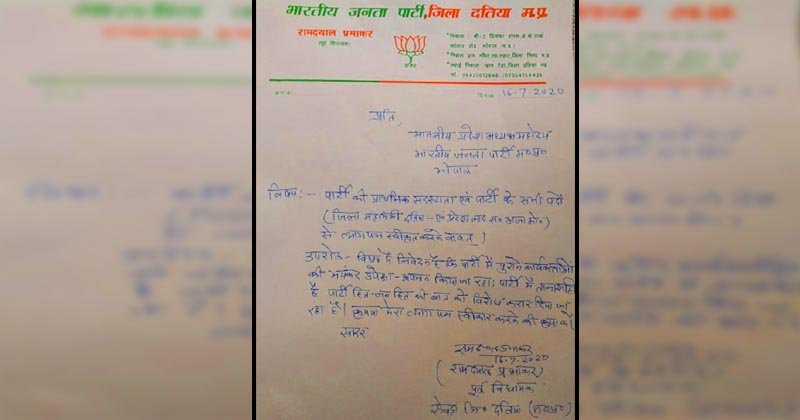 भारतीय जनता पार्टी,जिला दतिया म.प्र.
रामदयाल प्रभाकर
(पूर्व विधायक)
दिनांक 16.7.2020
प्रति,
माननीय प्रदेश अध्यक्ष महोदय
भारतीय जनता पार्टी म०प्र०
भोपाल
विषय:- पार्टी की प्राथमिक सदस्यता एवं पार्टी के सभी पदों
(जिला महामंत्री दतिया - एवं प्रदेश
से त्यागपत्र स्वीकृत करने बावत्)
उपरोक्त - विषय में निवेदन है कि पार्टी में पुराने कार्यकर्ताओं
की भयंकर उपेक्षा - अपमान किया जा रहा। पार्टी में तानाशाही
है पार्टी हित - जन हित की बात को विरोध करार दिया जा
रहा है। कृपया मेरा त्याग पत्र स्वीकार करने की कृपा करें
सादर
16.7.2020
(रामदयाल प्रभाकर)
पूर्व विधायक
सेवढ़ा जिला दतिया (म०प्र०)